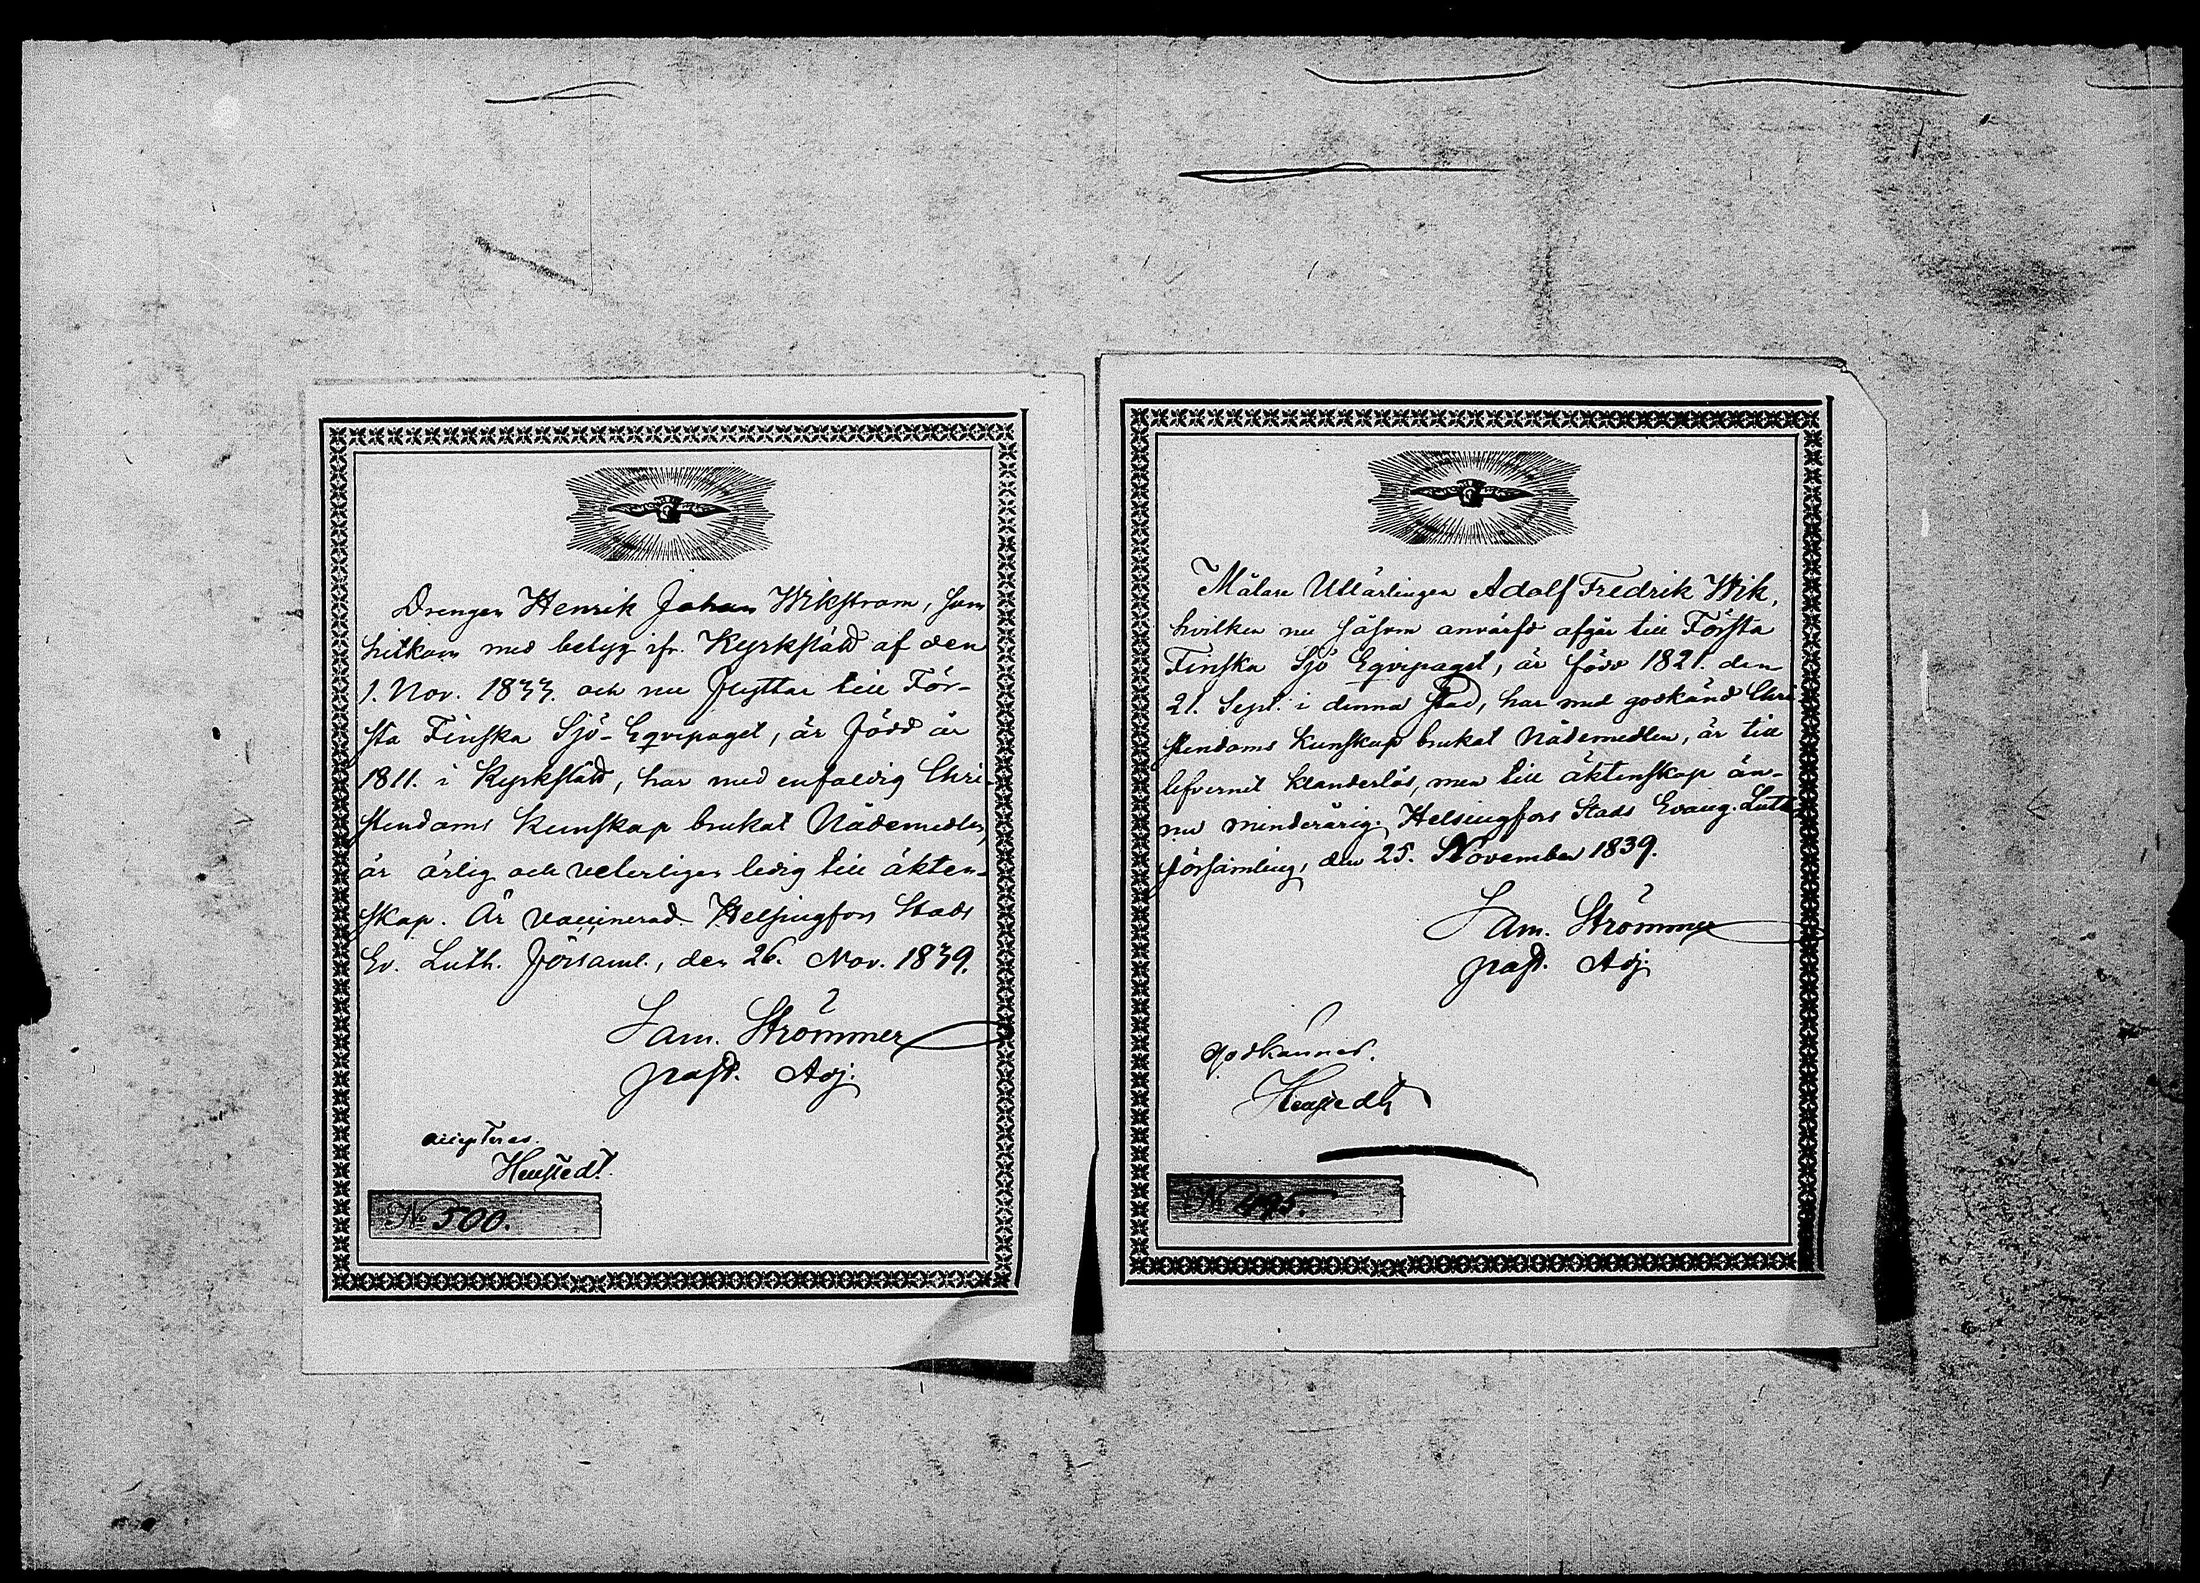 Drengen Henrik Johan Wikström, som
hitkom med betyg ifr. Kyrkslätt af den
1. Nov. 1833. och nu flyttar till För-
sta Finska Sjö-Eqvipaget, är född år
1811. i Kyrkslätt, har med enfaldig Chri-
stendoms kunskap brukat Nådemedlen,
är ärlig och veterligen ledig till äkten-
skap. Är vaccinerad. Helsingfors Stads
Ev. Luth. Församl., den 26. Nov. 1839.
Sam. Strömmer
past. Adj.
accepteras.
№ 500.
Målare Utlärlingen Adolf Fredrik Wik,
hvilken nu såsom anvärfd afgår till Första
Finska Sjö Eqvipaget, är född 1821. den
21. Sept. i denna Stad, har med godkänd Chri
stendoms kunskap brukat Nådemedlen, är till
lefvernet klanderlös, men till äktenskap än-
nu minderårig. Helsingfors Stads Evang. Luth.
församling, den 25. November 1839.
Sam. Strömmer
past. Adj.
godkännes.
№ 495.